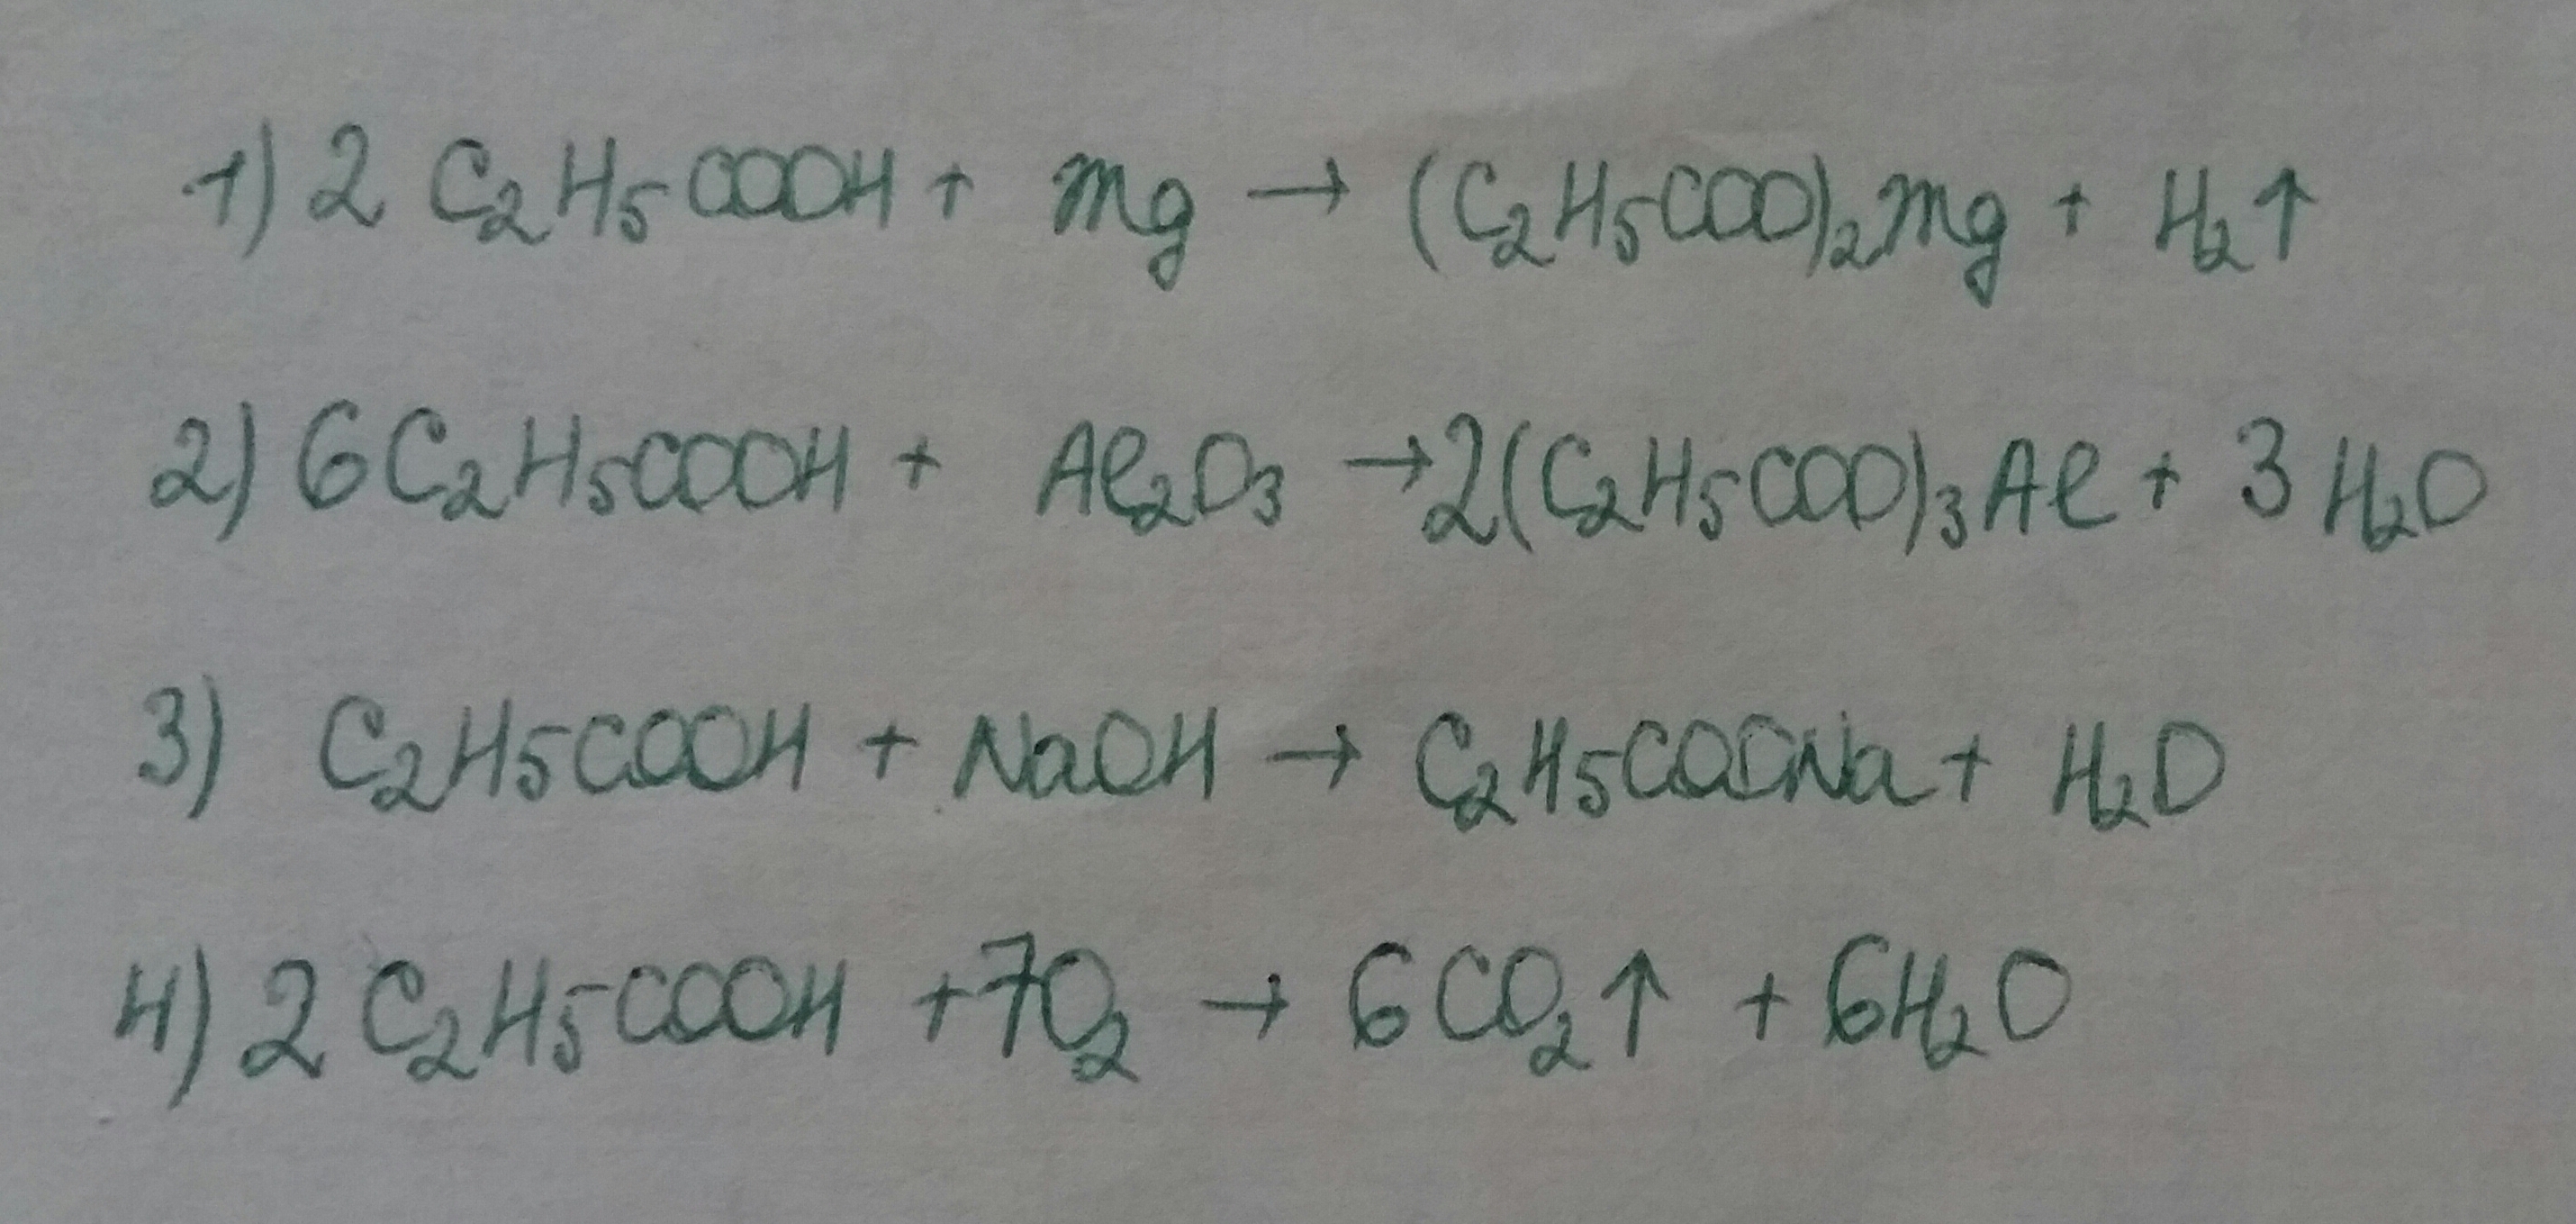 1) 2 C₂H₅COOH + Mg → (C₂H₅COO)₂Mg + H₂↑
2) 6C₂H₅COOH + Al₂O₃ → 2(C₂H₅COO)₃Al + 3H₂O
3) C₂H₅COOH + NaOH → C₂H₅COONa + H₂O
4) 2 C₂H₅COOH + 7O₂ → 6CO₂↑ + 6H₂O